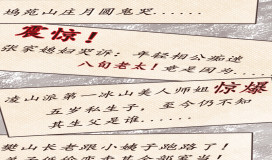 坞苑山庄月圆鬼哭......
震惊!
张家媳妇哭诉:年轻相公痴迷
八旬老太!竟是因为....
凌山派第一冰山美人师姐惊爆
五岁私生子,至今仍不知
其生父是谁......
樊山长老跟小姨子跑路了!